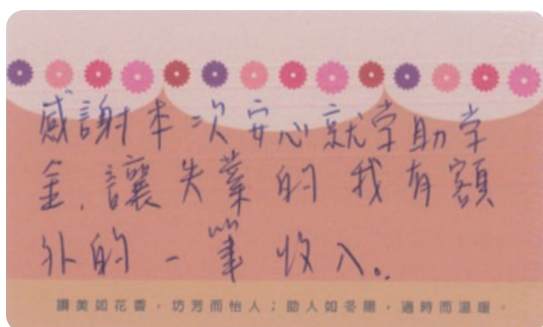 感謝本次安心就学助学
金,讓失業的我有額
外的一筆收入。
讚美如花香,芬芳而怡人;助人如冬陽,適時而溫暖。